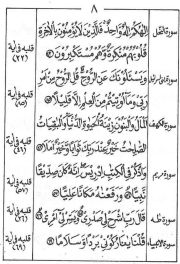 ٨
سورة النحل
إِلَٰهُكُمْ إِلَٰهٌ وَاحِدٌ فَالَّذِينَ لَا يُؤْمِنُونَ بِالْآخِرَةِ
قُلُوبُهُمْ مُنْكِرَةٌ وَهُمْ مُسْتَكْبِرُونَ
قلبه في آية
(٢٢)
سورة بني إسرائيل
وَيَسْئَلُونَكَ عَنِ الرُّوحِ قُلِ الرُّوحُ مِنْ أَمْرِ
رَبِّي وَمَا أُوتِيتُمْ مِنَ الْعِلْمِ إِلَّا قَلِيلًا
قلبه في آية
(٨٥)
سورة الكهف
الْمَالُ وَالْبَنُونَ زِينَةُ الْحَيَوٰةِ الدُّنْيَا وَالْبَاقِيَاتُ
الصَّالِحَاتُ خَيْرٌ عِنْدَ رَبِّكَ ثَوَابًا وَخَيْرٌ أَمَلًا
قلبه في آية
(٤٦)
سورة مريم
وَاذْكُرْ فِي الْكِتَابِ إِدْرِيسَ إِنَّهُ كَانَ صِدِّيقًا
نَبِيًّا وَرَفَعْنَاهُ مَكَانًا عَلِيًّا
قلبه في آية
(٥٦)
سورة طه
قَالَ رَبِّ اشْرَحْ لِي صَدْرِي وَيَسِّرْ لِي أَمْرِي
سورة الأنبياء
قُلْنَا يَا نَارُ كُونِي بَرْدًا وَسَلَامًا
قلبه في آية
(٦٩)